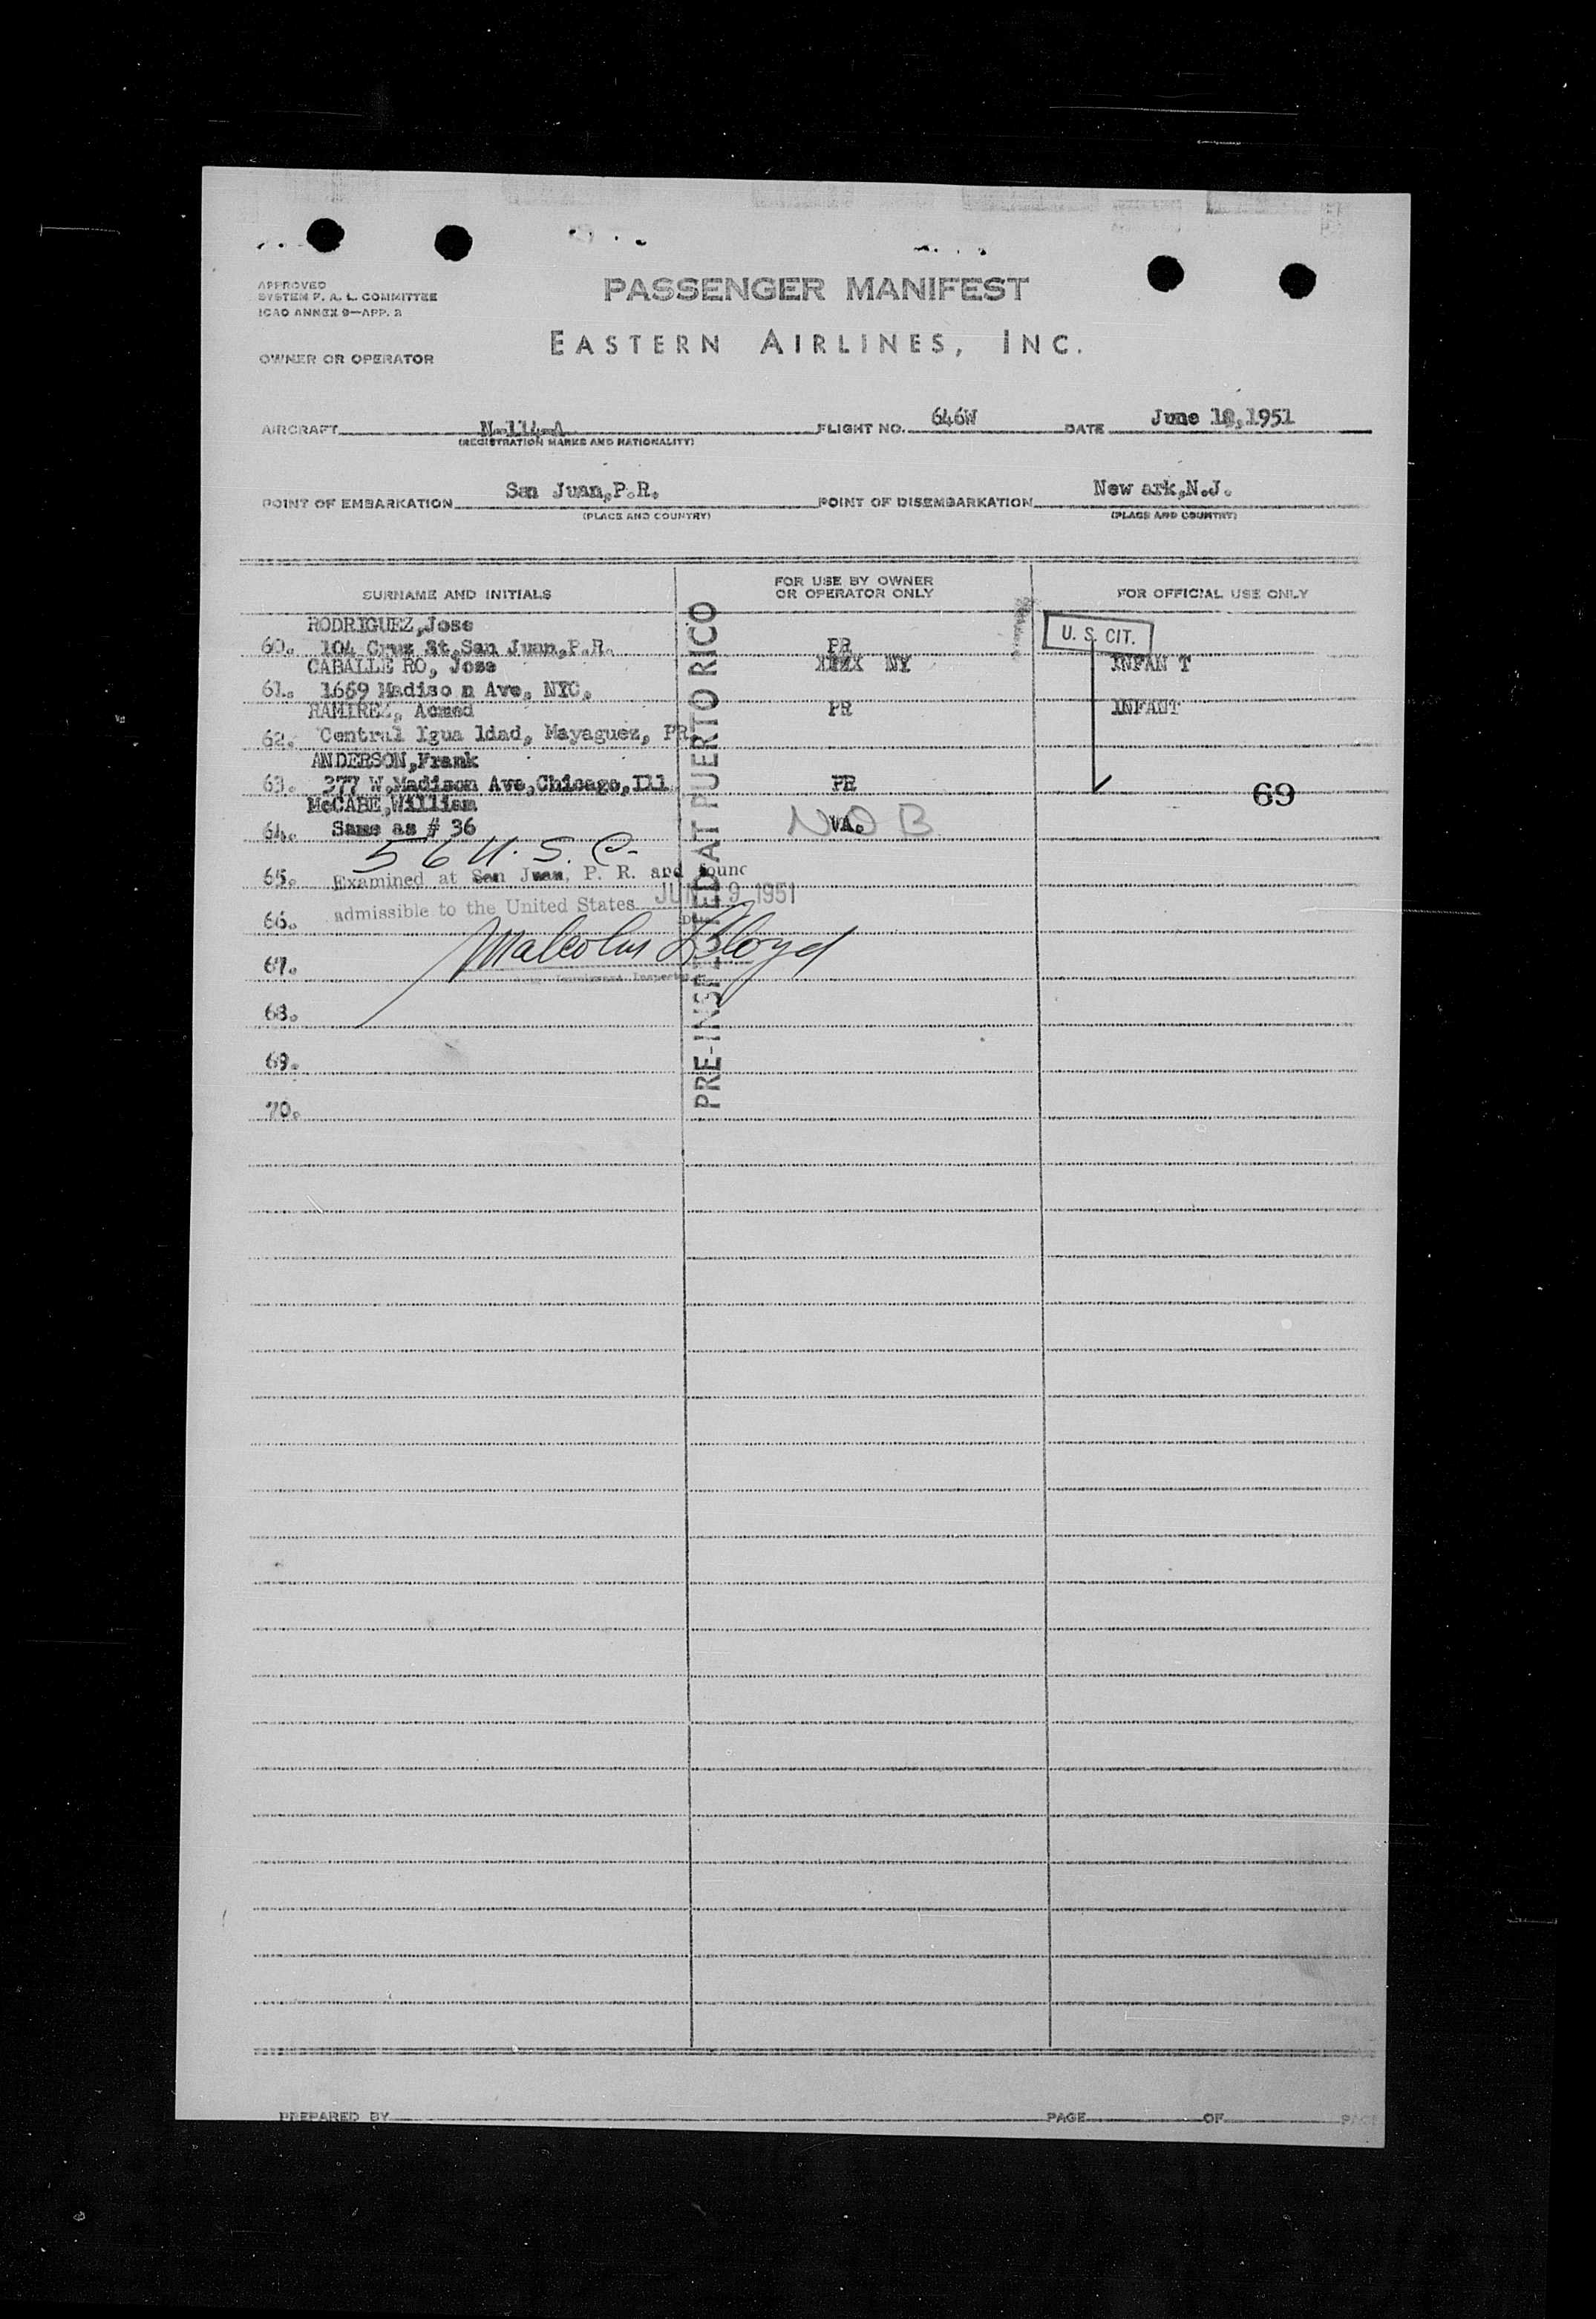 APPROVED
SYSTEM F. A. L. COMMITTEE
ICAO ANNEX 9—APP. 2
PASSENGER MANIFEST
EASTERN AIRLINES, INC.
OWNER OR OPERATOR
AIRCRAFT N-114-A FLIGHT NO. 646W DATE June 18,1951
(REGISTRATION MARKS AND NATIONALITY)
POINT OF EMBARKATION San Juan,P.R. POINT OF DISEMBARKATION New ark,N.J.
(PLACE AND COUNTRY) (PLACE AND COUNTRY)
SURNAME AND INITIALS FOR USE BY OWNER OR OPERATOR ONLY FOR OFFICIAL USE ONLY
RODRIGUEZ,Jose
60. 104 Cruz St,San Juan,P.R. PR U. S. CIT.
CABALLE RO, Jose NY INFAN T
61. 1669 Madiso n Ave, NYC.
RAMIREZ, Acmed PR INFANT
62. Central Igua ldad, Mayaguez, PR
ANDERSON,Frank
63. 377 W.Madison Ave,Chicago,Ill PR 69
McCABE,William
64. Same as # 36 VA. NOB
56 U. S. C.
65. Examined at San Juan, P. R. and found
66. admissible to the United States JUN 19 1951
67. Malcolm Lloyd
Immigrant Inspector
68.
69.
70.
PRE-INSPECTED AT PUERTO RICO
PREPARED BY PAGE OF PAGE